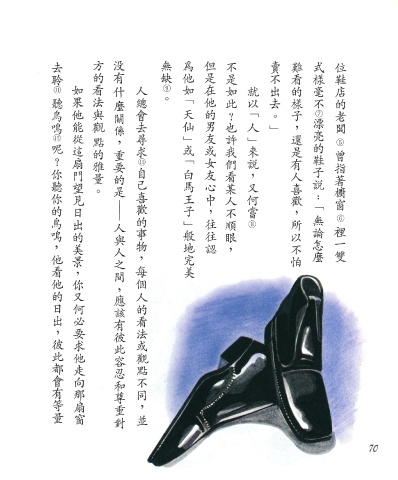 位鞋店的老闆⑤曾指著櫥窗⑥裡一雙
式樣毫不⑦漂亮的鞋子說：「無論怎麼
難看的樣子，還是有人喜歡，所以不怕
賣不出去。」
就以「人」來說，又何嘗⑧
不是如此？也許我們看某人不順眼，
但是在他的男友或女友心中，往往認
為他如「天仙」或「白馬王子」般地完美
無缺⑨。
人總會去尋求⑩自己喜歡的事物，每個人的看法或觀點不同，並
沒有什麼關係，重要的是——人與人之間，應該有彼此容忍和尊重對
方的看法與觀點的雅量。
如果他能從這扇門望見日出的美景，你又何必要求他走向那扇窗
去聆⑪聽鳥鳴⑫呢？你聽你的鳥鳴，他看他的日出，彼此都會有等量
70